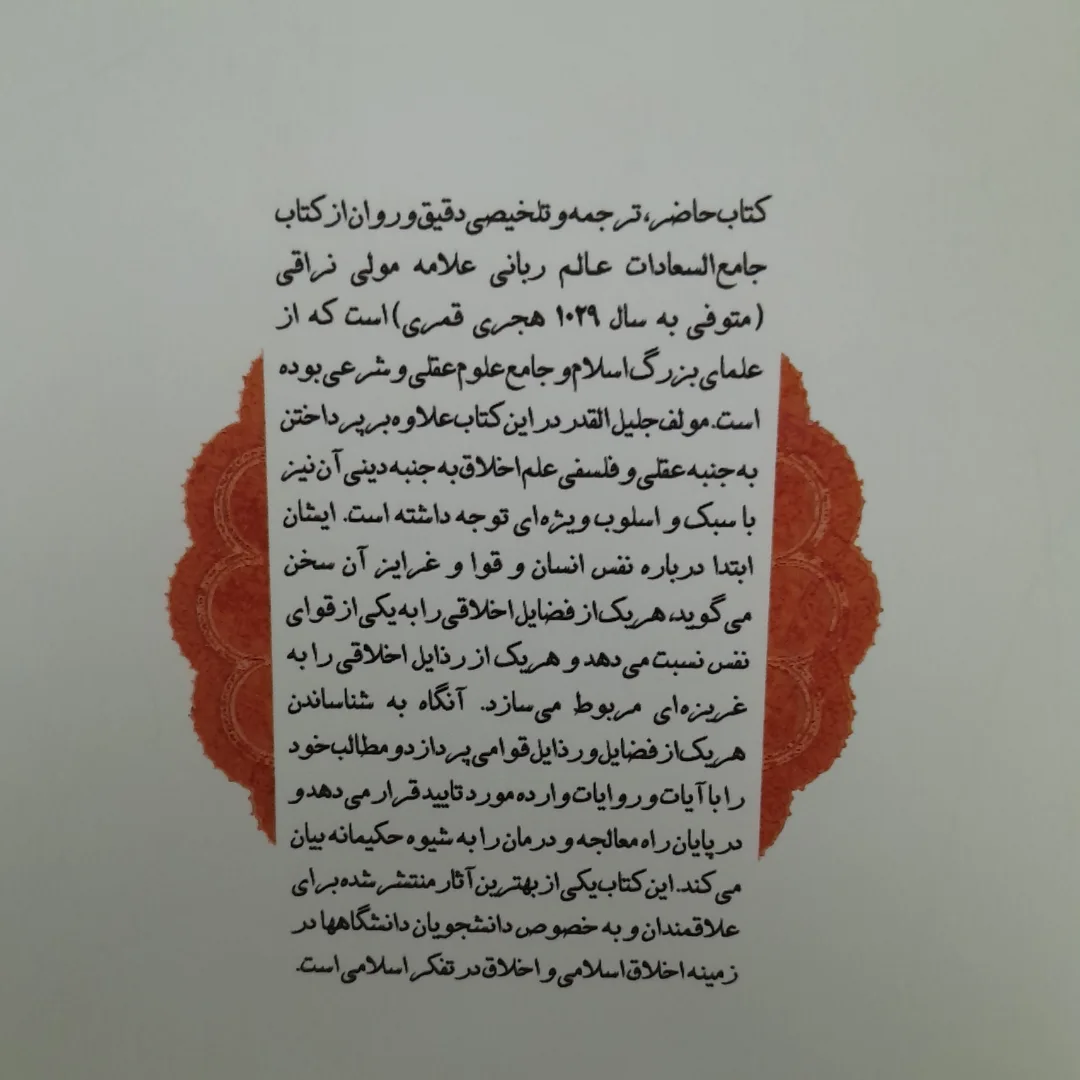 کتاب حاضر، ترجمه و تلخیصی دقیق و روان از کتاب
جامع السعادات عالم ربانی علامه مولی نراقی
(متوفی به سال ۱۰۲۹ هجری قمری) است که از
علمای بزرگ اسلام و جامع علوم عقلی و شرعی بوده
است. مولف جلیل القدر در این کتاب علاوه بر پرداختن
به جنبه عقلی و فلسفی علم اخلاق به جنبه دینی آن نیز
با سبک و اسلوب ویژه‌ای توجه داشته است. ایشان
ابتدا درباره نفس انسان و قوا و غرایز آن سخن
می‌گوید، هر یک از فضایل اخلاقی را به یکی از قوای
نفس نسبت می‌دهد و هر یک از رذایل اخلاقی را به
غریزه‌ای مربوط می‌سازد. آنگاه به شناساندن
هر یک از فضایل و رذایل قوا می‌پردازد و مطالب خود
را با آیات و روایات وارده مورد تایید قرار می‌دهد و
در پایان راه معالجه و درمان را به شیوه حکیمانه بیان
می‌کند. این کتاب یکی از بهترین آثار منتشر شده برای
علاقمندان و به خصوص دانشجویان دانشگاهها در
زمینه اخلاق اسلامی و اخلاق در تفکر اسلامی است.